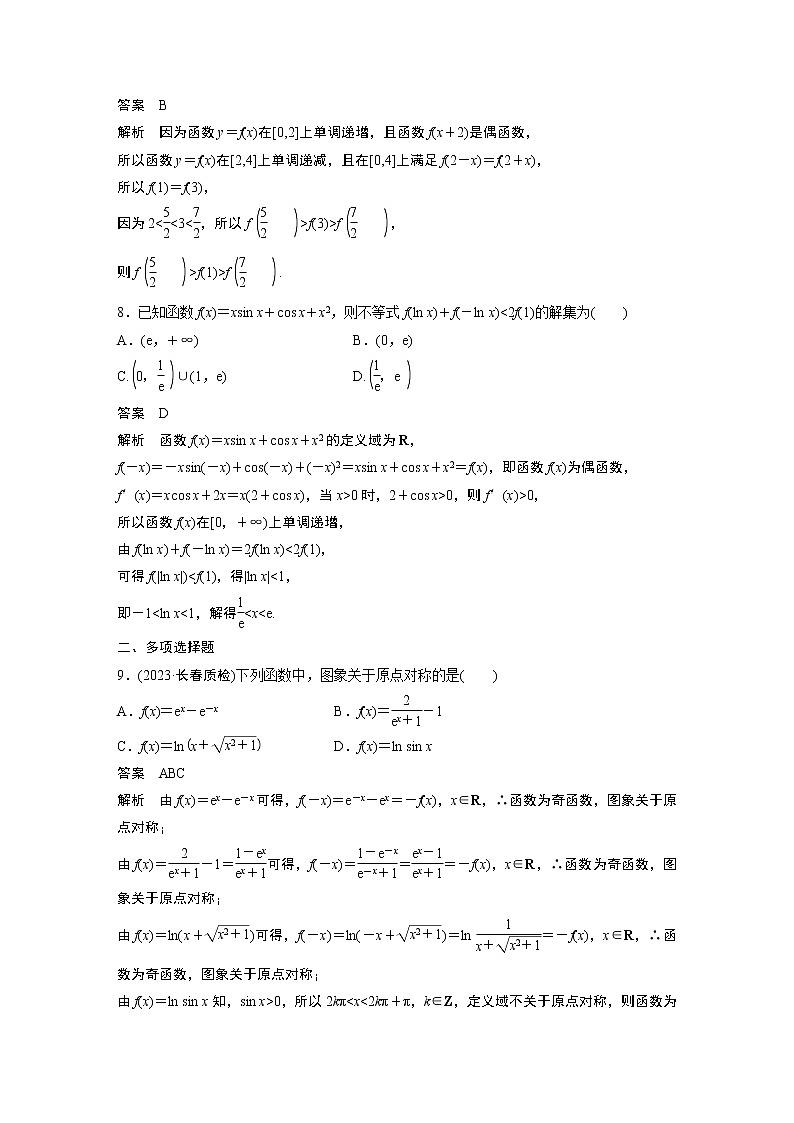 答案　B
解析　因为函数 y＝f(x)在[0,2]上单调递增，且函数 f(x＋2)是偶函数，
所以函数 y＝f(x)在[2,4]上单调递减，且在[0,4]上满足 f(2－x)＝f(2＋x)，
所以 f(1)＝f(3)，
因为 2<5/2<3<7/2，所以 f(5/2)>f(3)>f(7/2)，
则 f(5/2)>f(1)>f(7/2).
8．已知函数 f(x)＝xsin x＋cos x＋x²，则不等式 f(ln x)＋f(－ln x)<2f(1)的解集为(　　)
A．(e，＋∞)　　B．(0，e)
C.(0，1/e)∪(1，e)　　D.(1/e，e)
答案　D
解析　函数 f(x)＝xsin x＋cos x＋x² 的定义域为 R，
f(－x)＝－xsin(－x)＋cos(－x)＋(－x)²＝xsin x＋cos x＋x²＝f(x)，即函数 f(x)为偶函数，
f′(x)＝xcos x＋2x＝x(2＋cos x)，当 x>0 时，2＋cos x>0，则 f′(x)>0，
所以函数 f(x)在[0，＋∞)上单调递增，
由 f(ln x)＋f(－ln x)＝2f(ln x)<2f(1)，
可得 f(|ln x|)<f(1)，得|ln x|<1，
即－1<ln x<1，解得1/e<x<e.
二、多项选择题
9．(2023·长春质检)下列函数中，图象关于原点对称的是(　　)
A．f(x)＝eˣ－e⁻ˣ　　B．f(x)＝2/(eˣ＋1)－1
C．f(x)＝ln(x＋√(x²＋1))　　D．f(x)＝ln sin x
答案　ABC
解析　由 f(x)＝eˣ－e⁻ˣ 可得，f(－x)＝e⁻ˣ－eˣ＝－f(x)，x∈R，∴函数为奇函数，图象关于原
点对称；
由 f(x)＝2/(eˣ＋1)－1＝(1－eˣ)/(eˣ＋1)可得，f(－x)＝(1－e⁻ˣ)/(e⁻ˣ＋1)＝(eˣ－1)/(eˣ＋1)＝－f(x)，x∈R，∴函数为奇函数，图
象关于原点对称；
由 f(x)＝ln(x＋√(x²＋1))可得，f(－x)＝ln(－x＋√(x²＋1))＝ln 1/(x＋√(x²＋1))＝－f(x)，x∈R，∴函
数为奇函数，图象关于原点对称；
由 f(x)＝ln sin x 知，sin x>0，所以 2kπ<x<2kπ＋π，k∈Z，定义域不关于原点对称，则函数为